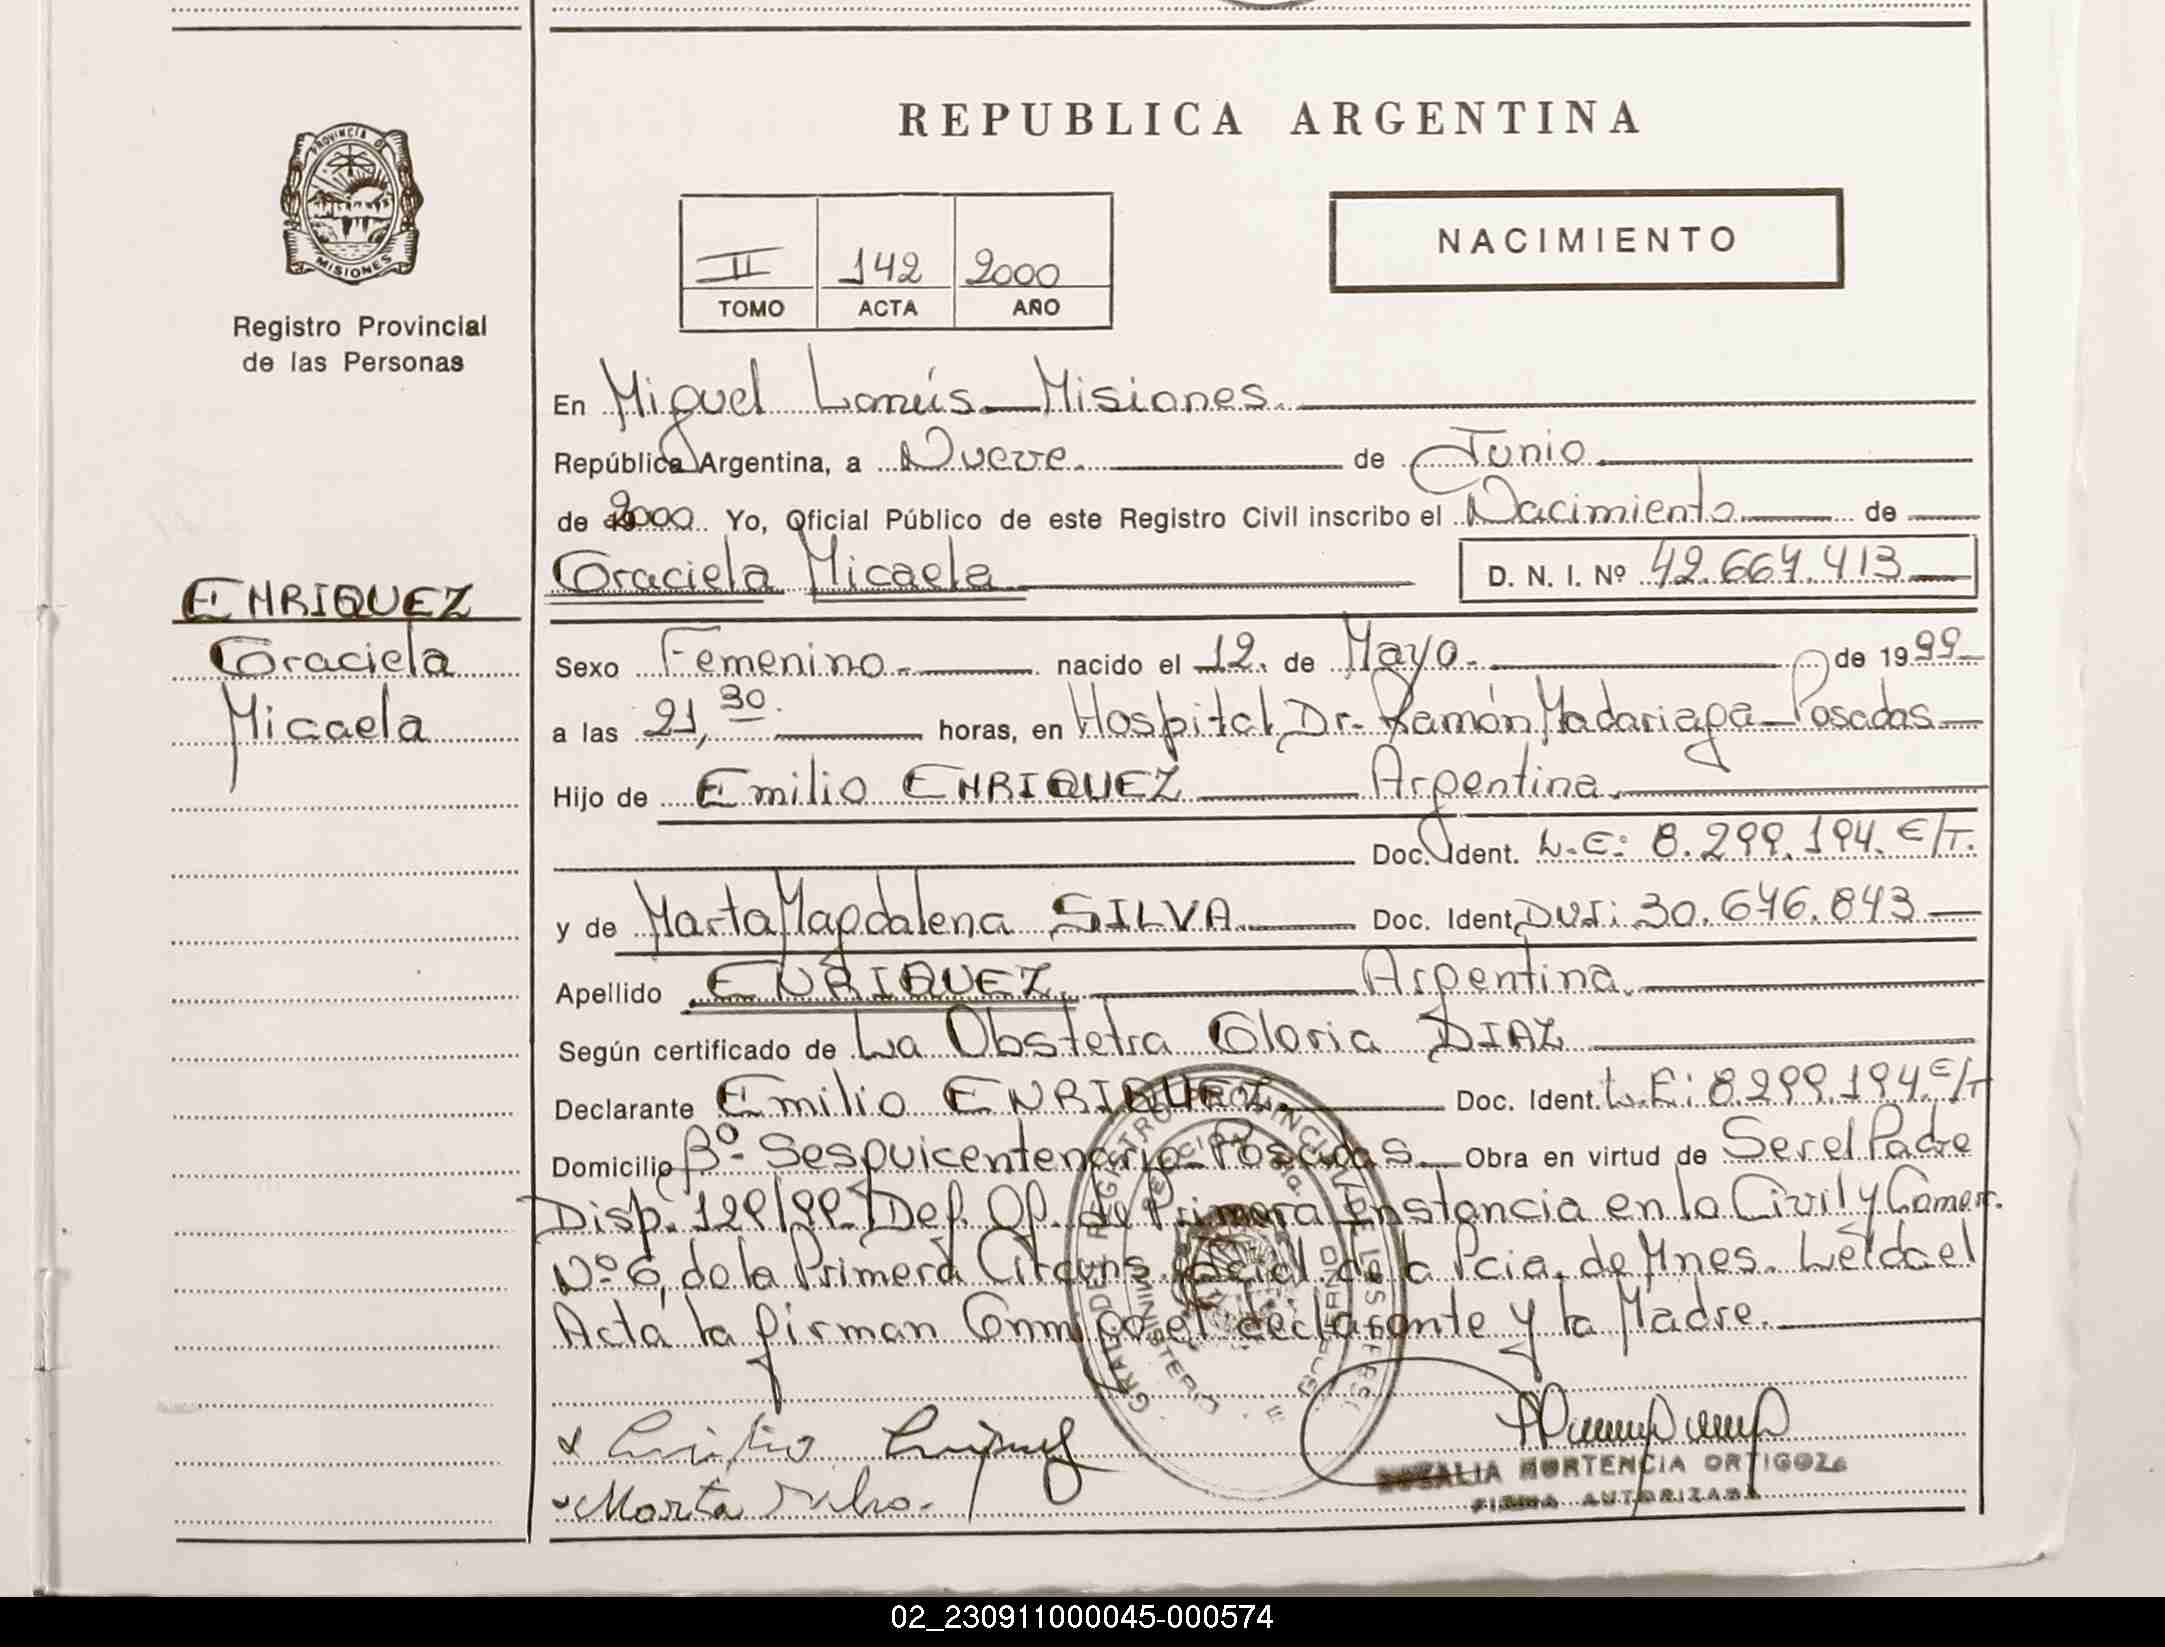 REPUBLICA ARGENTINA
PROVINCIA DE
MISIONES
Registro Provincial
de las Personas
II 142 2000
TOMO ACTA AÑO
NACIMIENTO
En Miguel Lanús - Misiones.
República Argentina, a Nueve. de Junio
de 2000 Yo, Oficial Público de este Registro Civil inscribo el Nacimiento de
Graciela Micaela D. N. I. Nº 42.664.413
ENRIQUEZ
Graciela
Micaela
Sexo Femenino. nacido el 12. de Mayo. de 1999
a las 21,30. horas, en Hospital Dr. Ramón Madariaga - Posadas
Hijo de Emilio ENRIQUEZ Argentina.
Doc. Ident. L.E: 8.299.194. E/T.
y de Marta Magdalena SILVA. Doc. Ident. DUI: 30.646.843
Apellido ENRIQUEZ. Argentina.
Según certificado de La Obstetra Gloria DIAZ
Declarante Emilio ENRIQUEZ. Doc. Ident. L.E: 8.299.194. E/T
Domicilio Bº- Sesquicentenario - Posadas. Obra en virtud de Ser el Padre
Disp. 129/99. Def. Of. de Primera Instancia en lo Civil y Comer.
Nº 6, de la Primera Circuns. Jdcial. de la Pcia. de Mnes. Leída el
Acta la firman Conmigo el declarante y la Madre.
Emilio Enriquez
Marta Silva.
HORTENCIA ORTIGOZA
FIRMA AUTORIZADA
02_230911000045-000574